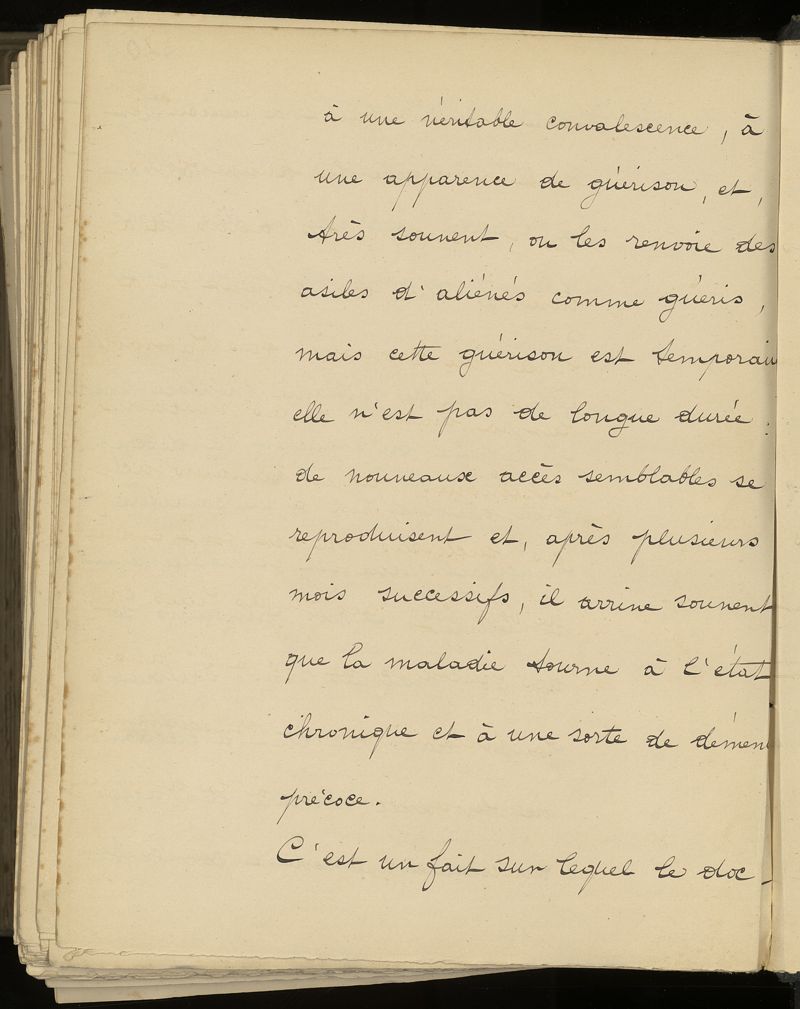 à une véritable convalescence, à
une apparence de guérison, et,
très souvent, on les renvoie des
asiles d'aliénés comme guéris,
mais cette guérison est temporai
elle n'est pas de longue durée :
de nouveaux accès semblables se
reproduisent et, après plusieurs
mois successifs, il arrive souvent
que la maladie tourne à l'état
chronique et à une sorte de démen
précoce.
C'est un fait sur lequel le doc-